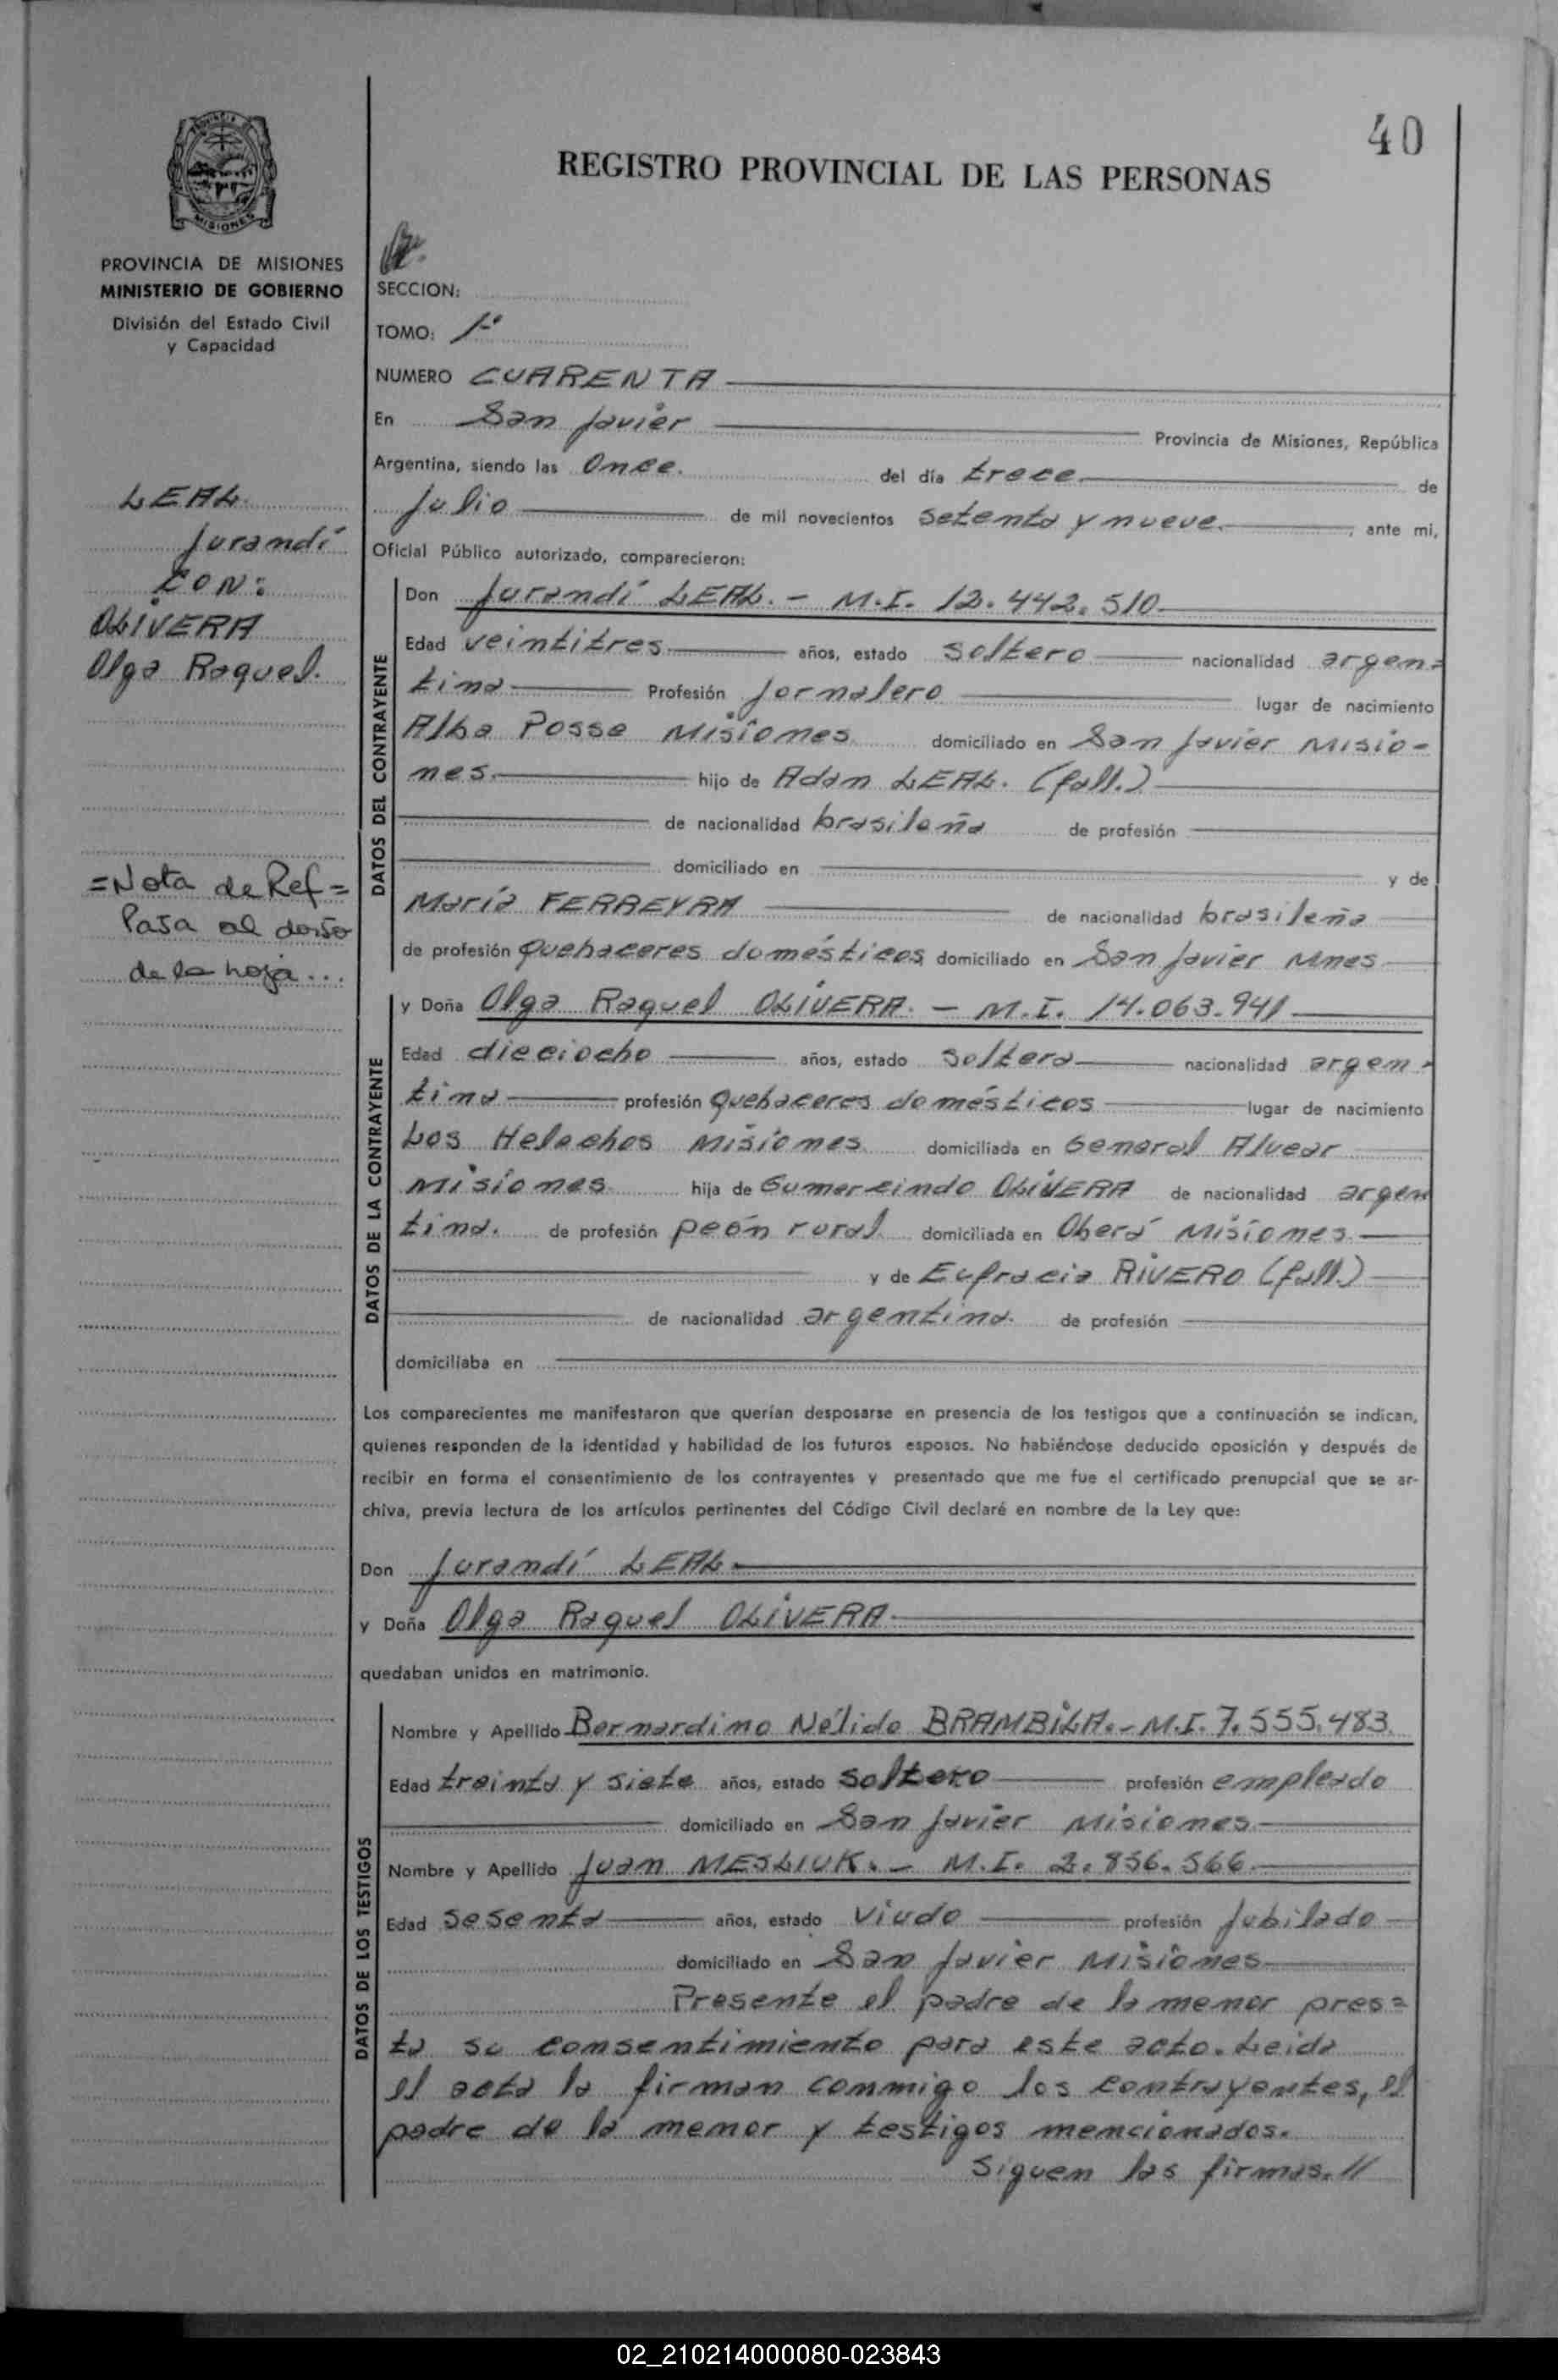 40
REGISTRO PROVINCIAL DE LAS PERSONAS
MISIONES
PROVINCIA DE MISIONES
MINISTERIO DE GOBIERNO
División del Estado Civil
y Capacidad
LEAL
Jurandí
CON:
OLIVERA
Olga Raquel.
=Nota de Ref=
Pasa al dorso
de la hoja...
SECCION:
TOMO: 1º
NUMERO CUARENTA
En San Javier Provincia de Misiones, República
Argentina, siendo las Once. del día trece de
Julio de mil novecientos setenta y nueve. , ante mi,
Oficial Público autorizado, comparecieron:
DATOS DEL CONTRAYENTE
Don Jurandí LEAL. - M.I. 12.442.510
Edad veintitres años, estado soltero nacionalidad argen=
tina Profesión Jornalero lugar de nacimiento
Alba Posse Misiones domiciliado en San Javier Misio-
nes. hijo de Adan LEAL. (fall.)
de nacionalidad brasileña de profesión
domiciliado en y de
María FERREYRA de nacionalidad brasileña
de profesión quehaceres domésticos domiciliado en San Javier Mnes
DATOS DE LA CONTRAYENTE
y Doña Olga Raquel OLIVERA. - M.I. 14.063.941
Edad dieciocho años, estado soltera nacionalidad argen-
tina profesión quehaceres domésticos lugar de nacimiento
Los Helechos Misiones domiciliada en General Alvear
Misiones hija de Gumercindo OLIVERA de nacionalidad argen
tina. de profesión peón rural domiciliada en Oberá Misiones
y de Eufracia RIVERO (fall.)
de nacionalidad argentina. de profesión
domiciliaba en
Los comparecientes me manifestaron que querían desposarse en presencia de los testigos que a continuación se indican,
quienes responden de la identidad y habilidad de los futuros esposos. No habiéndose deducido oposición y después de
recibir en forma el consentimiento de los contrayentes y presentado que me fue el certificado prenupcial que se ar-
chiva, previa lectura de los artículos pertinentes del Código Civil declaré en nombre de la Ley que:
Don Jurandí LEAL
y Doña Olga Raquel OLIVERA
quedaban unidos en matrimonio.
DATOS DE LOS TESTIGOS
Nombre y Apellido Bernardino Nélido BRAMBILA.- M.I. 7.555.483
Edad treinta y siete años, estado soltero profesión empleado
domiciliado en San Javier Misiones
Nombre y Apellido Juan MESLIUK. - M.I. 2.836.566
Edad sesenta años, estado viudo profesión Jubilado
domiciliado en San Javier Misiones
Presente el padre de la menor pres=
ta su consentimiento para este acto. Leida
el acta la firman conmigo los contrayentes, el
padre de la menor y testigos mencionados.
Siguen las firmas.//
02_210214000080-023843